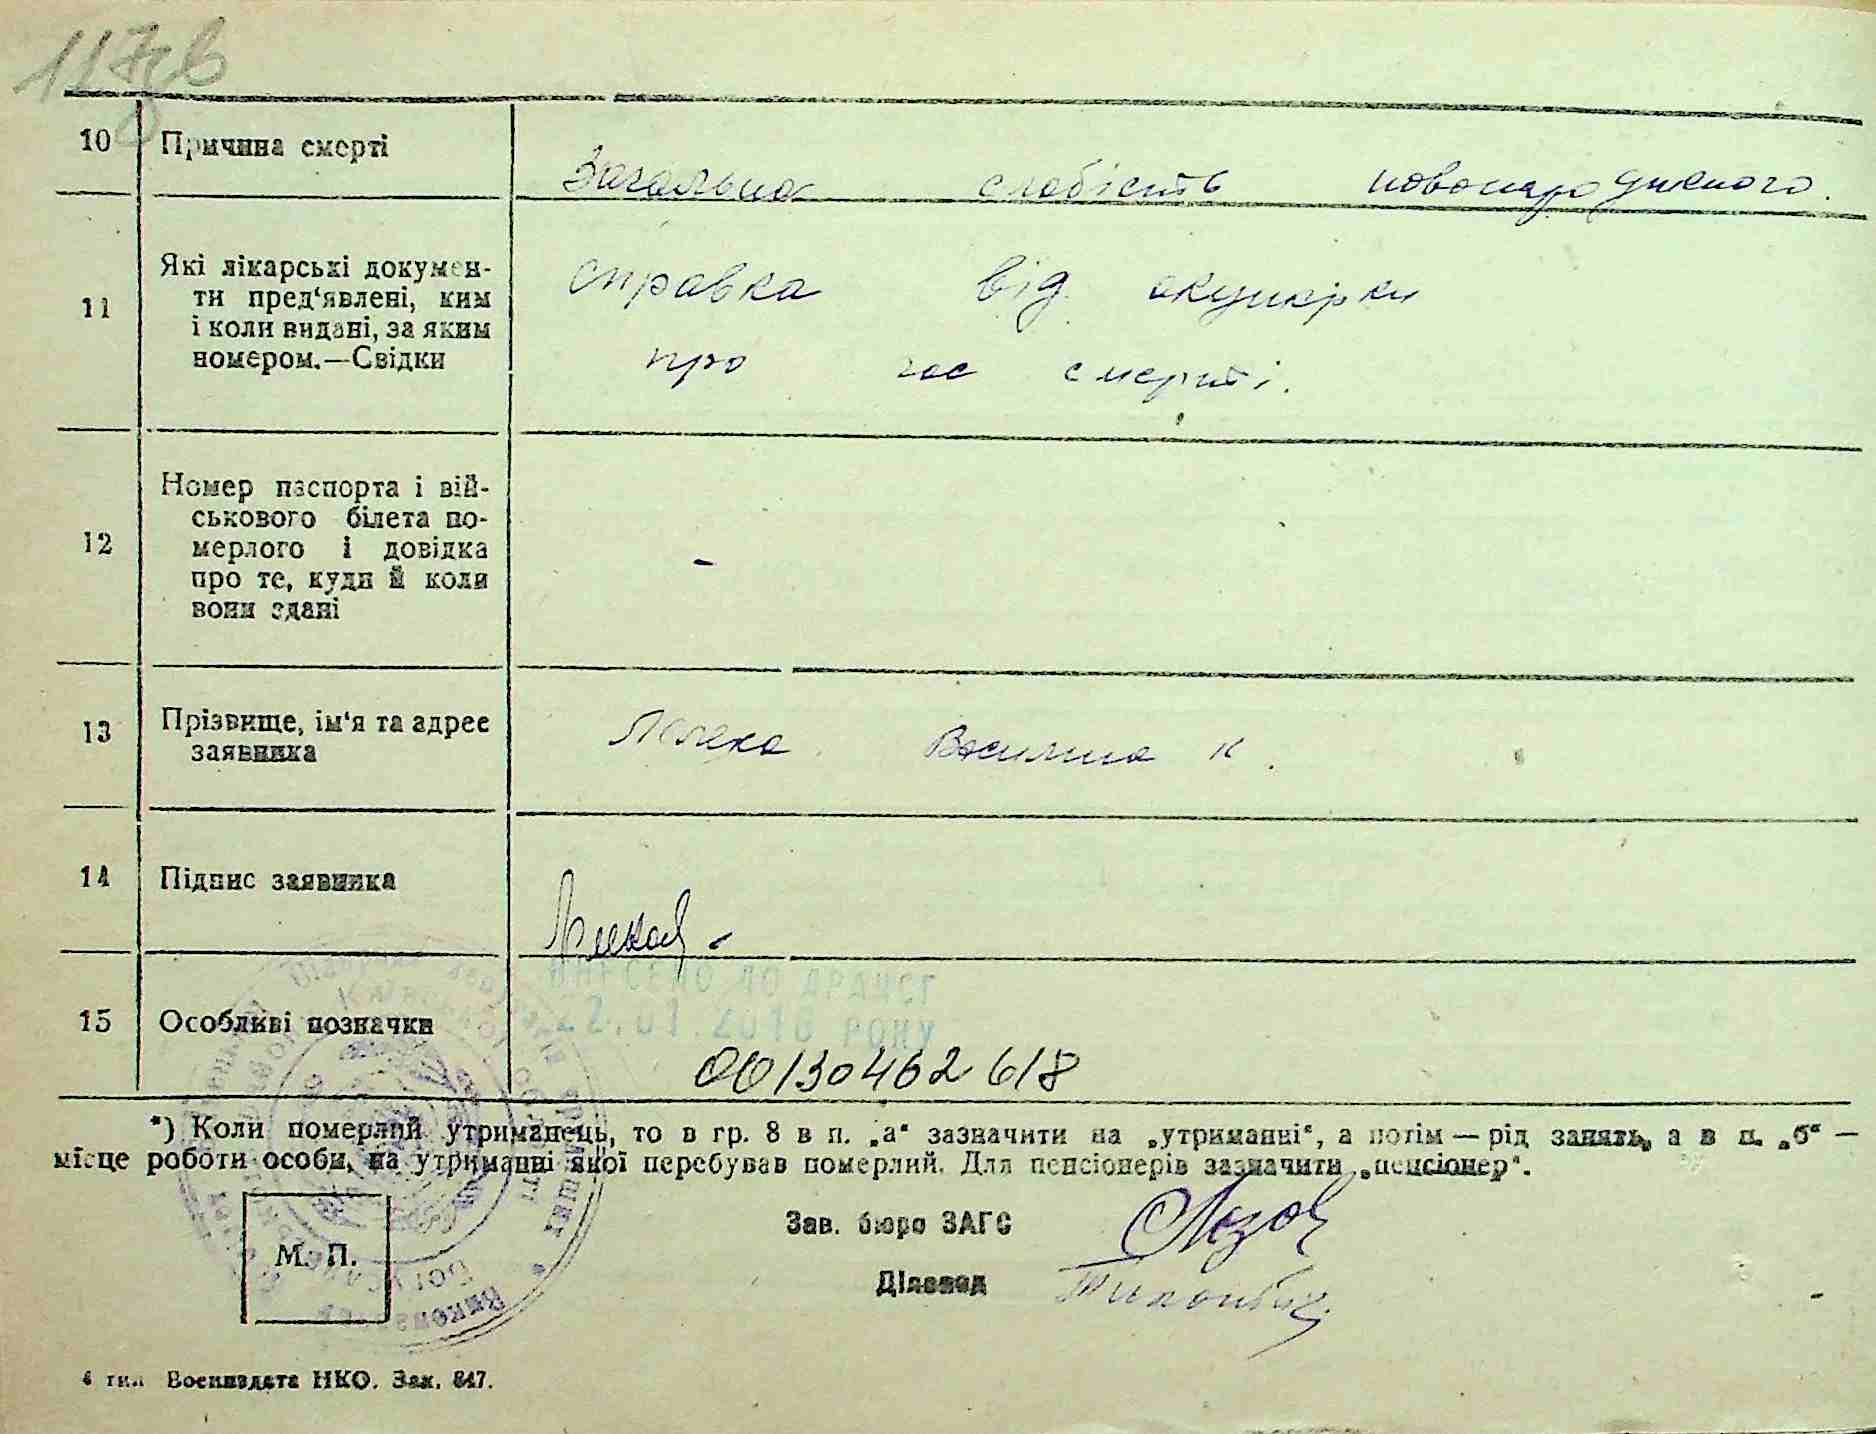 117зв
10 Причина смерті
Загальна слабість новонародженого.
11 Які лікарські докумен-
ти пред‘явлені, ким
і коли видані, за яким
номером.—Свідки
справка від акушерки
про час смерті.
12 Номер паспорта і вій-
ськового білета по-
мерлого і довідка
про те, куди й коли
вони здані
-
13 Прізвище, ім‘я та адрес
заявника
Василина К.
14 Підпис заявника
15 Особливі позначки
ВНЕСЕНО ДО ДРАЦСГ
22.01.2016 РОКУ
00130462618
*) Коли померлий утриманець, то в гр. 8 в п. „а“ зазначити на „утриманні“, а потім — рід занять, а в п. „б“ —
місце роботи особи, на утриманні якої перебував померлий. Для пенсіонерів зазначити „пенсіонер“.
М. П.
Зав. бюро ЗАГС
Діловод
4 тип Воениздата НКО. Зак. 847.